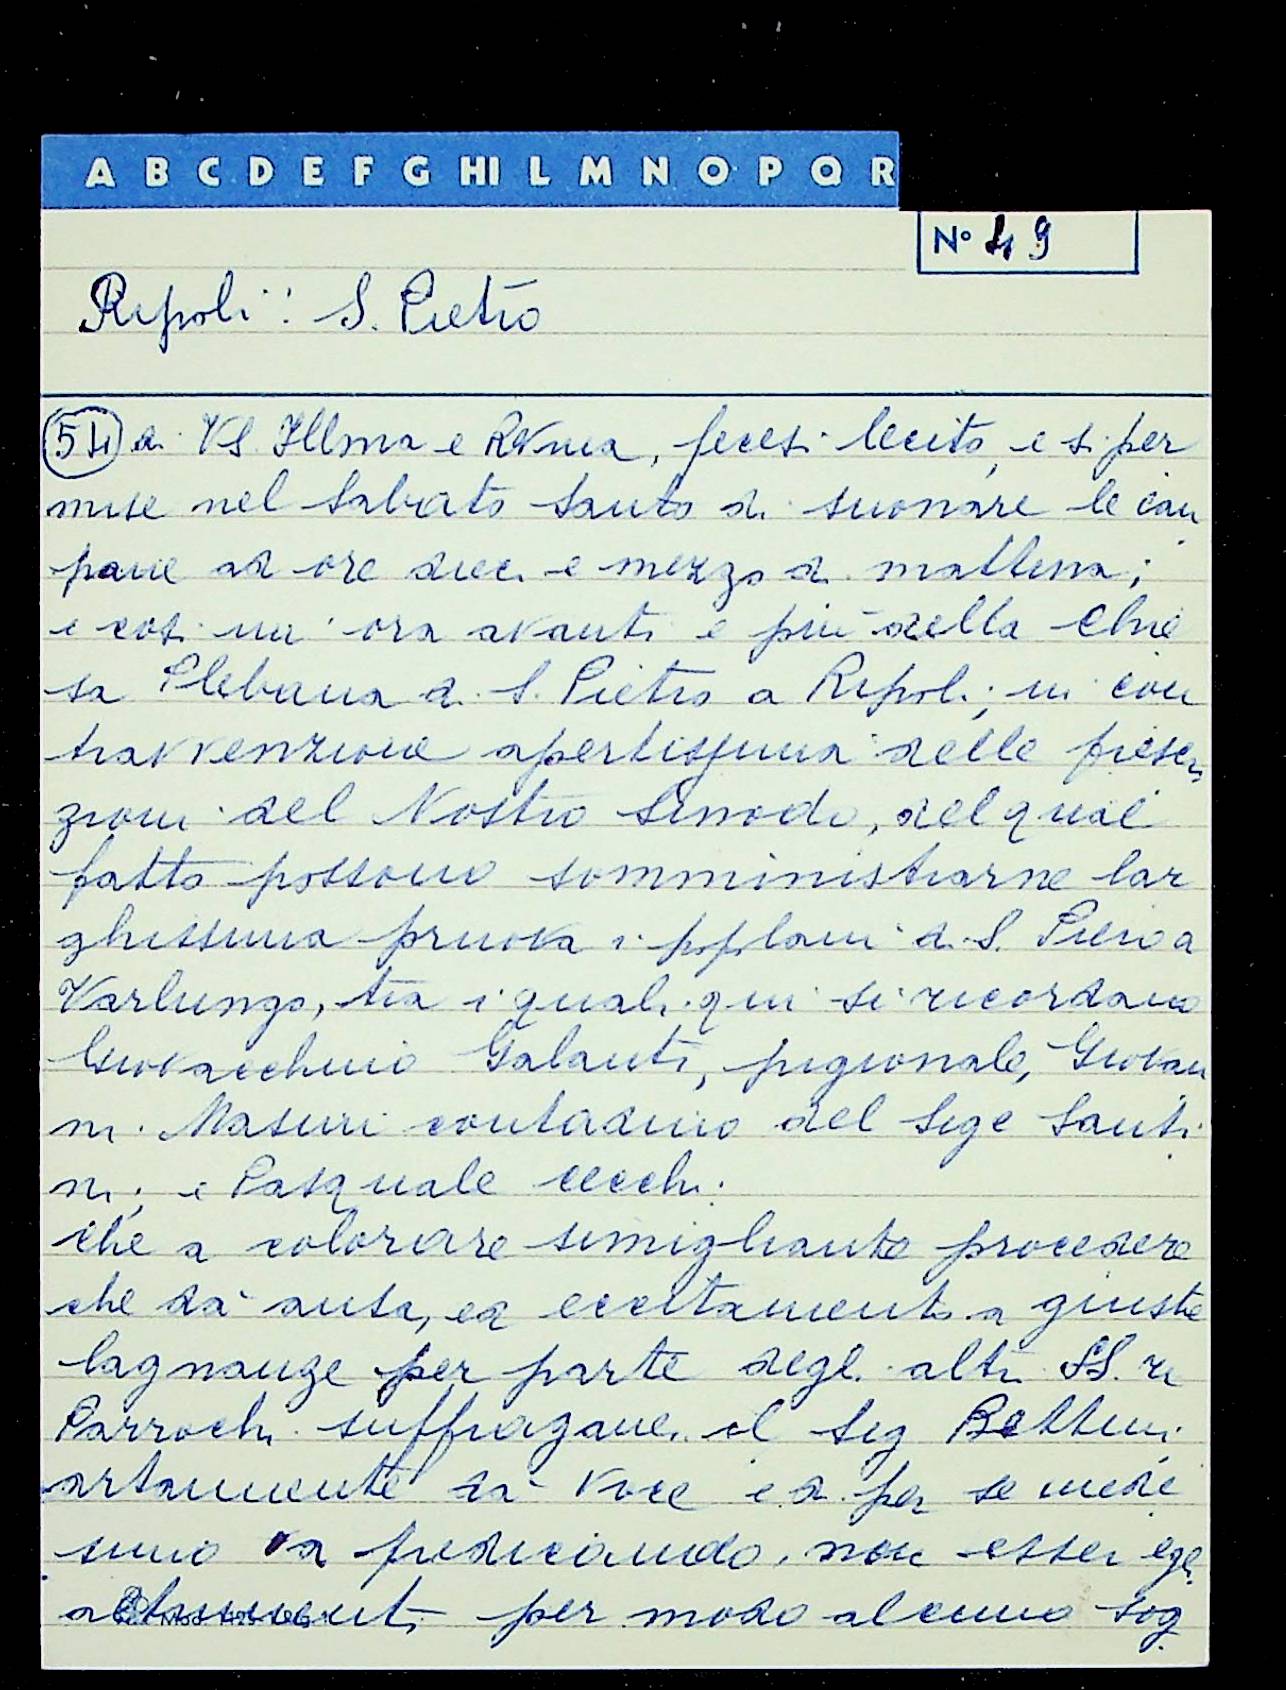 A B C D E F G HI L M N O P Q R
N° 49
Ripoli: S. Pietro
54 a VS. Illma e Revma, fecesi lecito, e si per
mise nel Sabato Santo di suonare le cam
pane ad ore dieci e mezzo di mattina;
e così un'ora avanti e più della Chie
sa Plebana di S. Pietro a Ripoli; in con
travvenzione apertissima delle prescri
zioni del Nostro Sinodo, del qual
fatto possono somministrarne lar
ghissima pruova i popolani di S. Piero a
Varlungo, tra i quali qui si ricordano
Giovacchino Galanti, pigionale, Giovan
ni Masini contadino del Sige Santi
ni; e Pasquale Cecchi.
Che a colorare simigliante procedere
che dà ansa, ed eccitamento a giuste
lagnanze per parte degli altri SS. ri
Parrochi suffraganei il Sig Bettini
artamente dà voce ed per se mede
simo va predicando, non esser egli
altramenti per modo alcuno sog